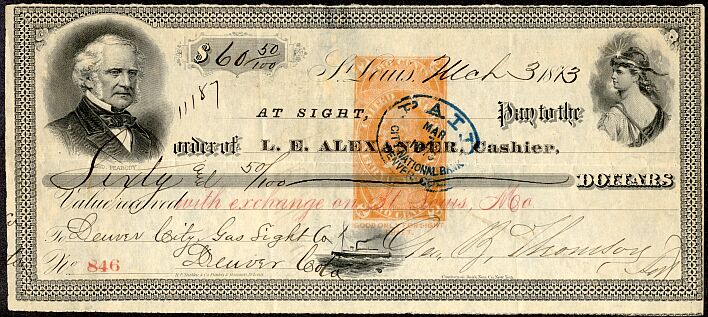 $60 50/100
St. Louis, Mch 3 1873
11187
AT SIGHT, Pay to the
order of L. E. ALEXANDER, Cashier,
GEO. PEABODY
Sixty & 50/100 DOLLARS
Value received with exchange on St. Louis, Mo
To Denver City Gas Sight Co
Denver Cola
No 846
Jas. R. Thomson
PAID
MAR
CITY NATIONAL BANK
DENVER
TWO CENTS
GOOD ONLY FOR SIGHT